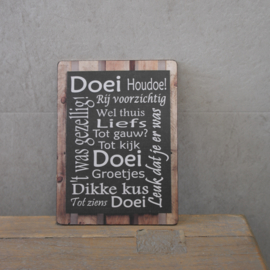 Doei Houdoe!
Rij voorzichtig
Wel thuis
Liefs
Tot gauw?
Tot kijk
Doei
Groetjes
Dikke kus
Tot ziens Doei
't was gezellig!
Leuk dat je er was